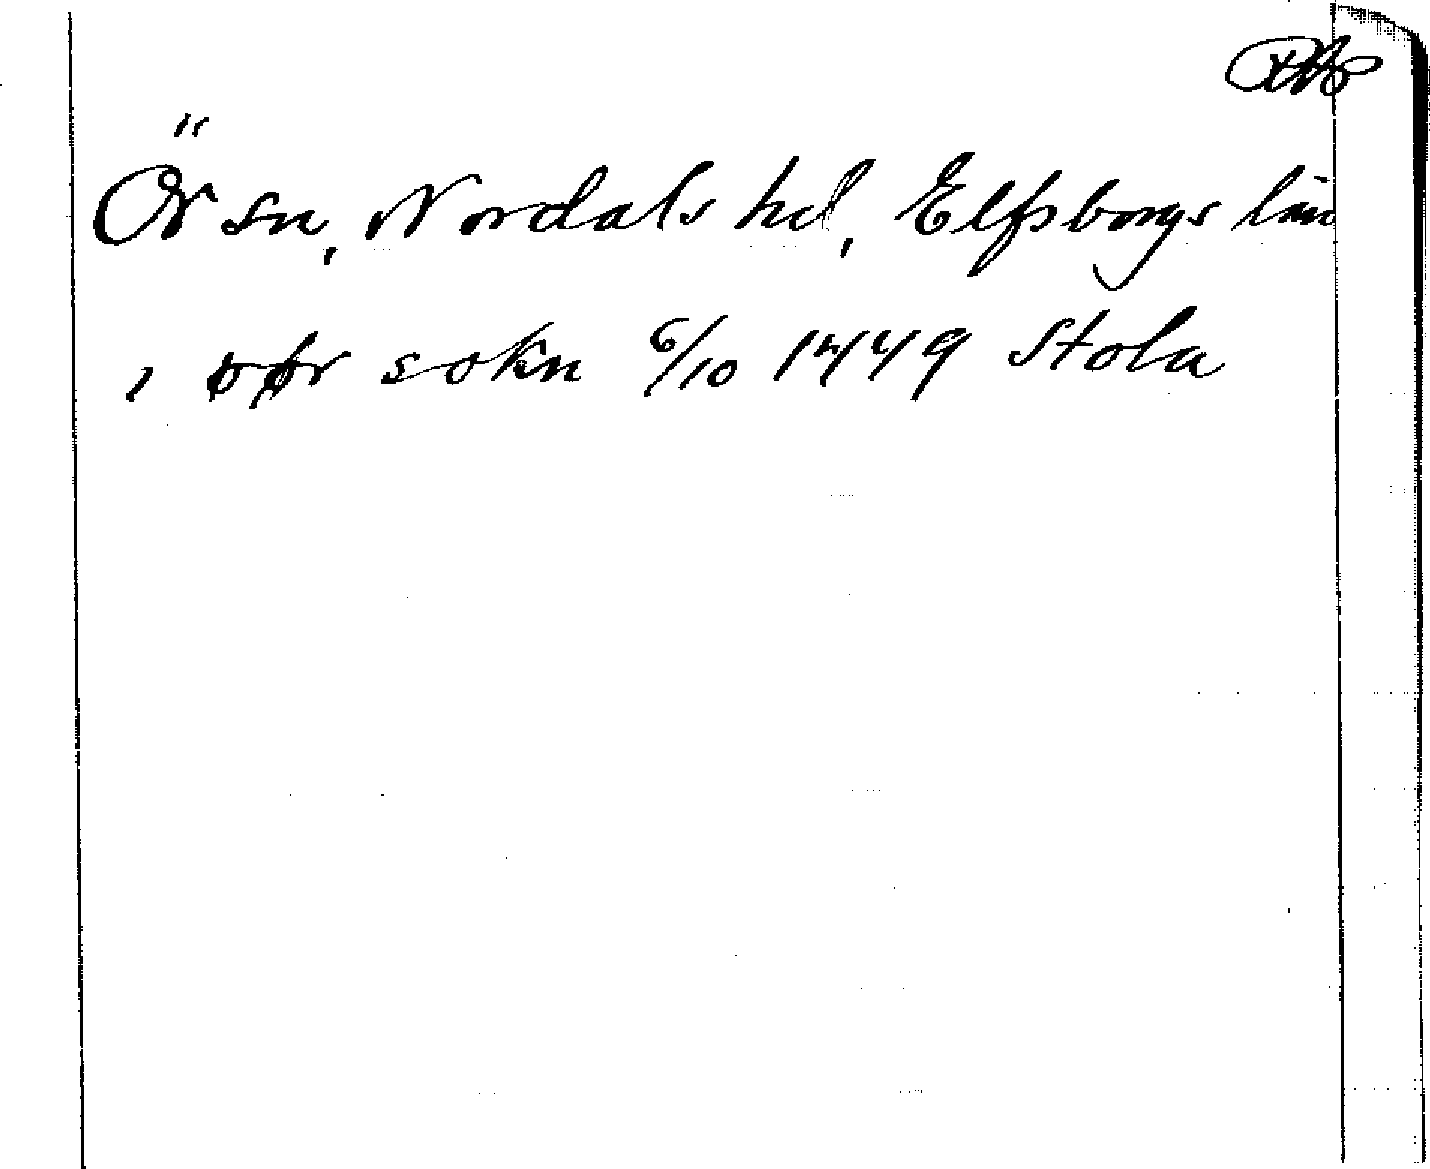 Ör sn, Nordals hd, Elfsborgs län
i øør sokn 6/10 1449 Stola